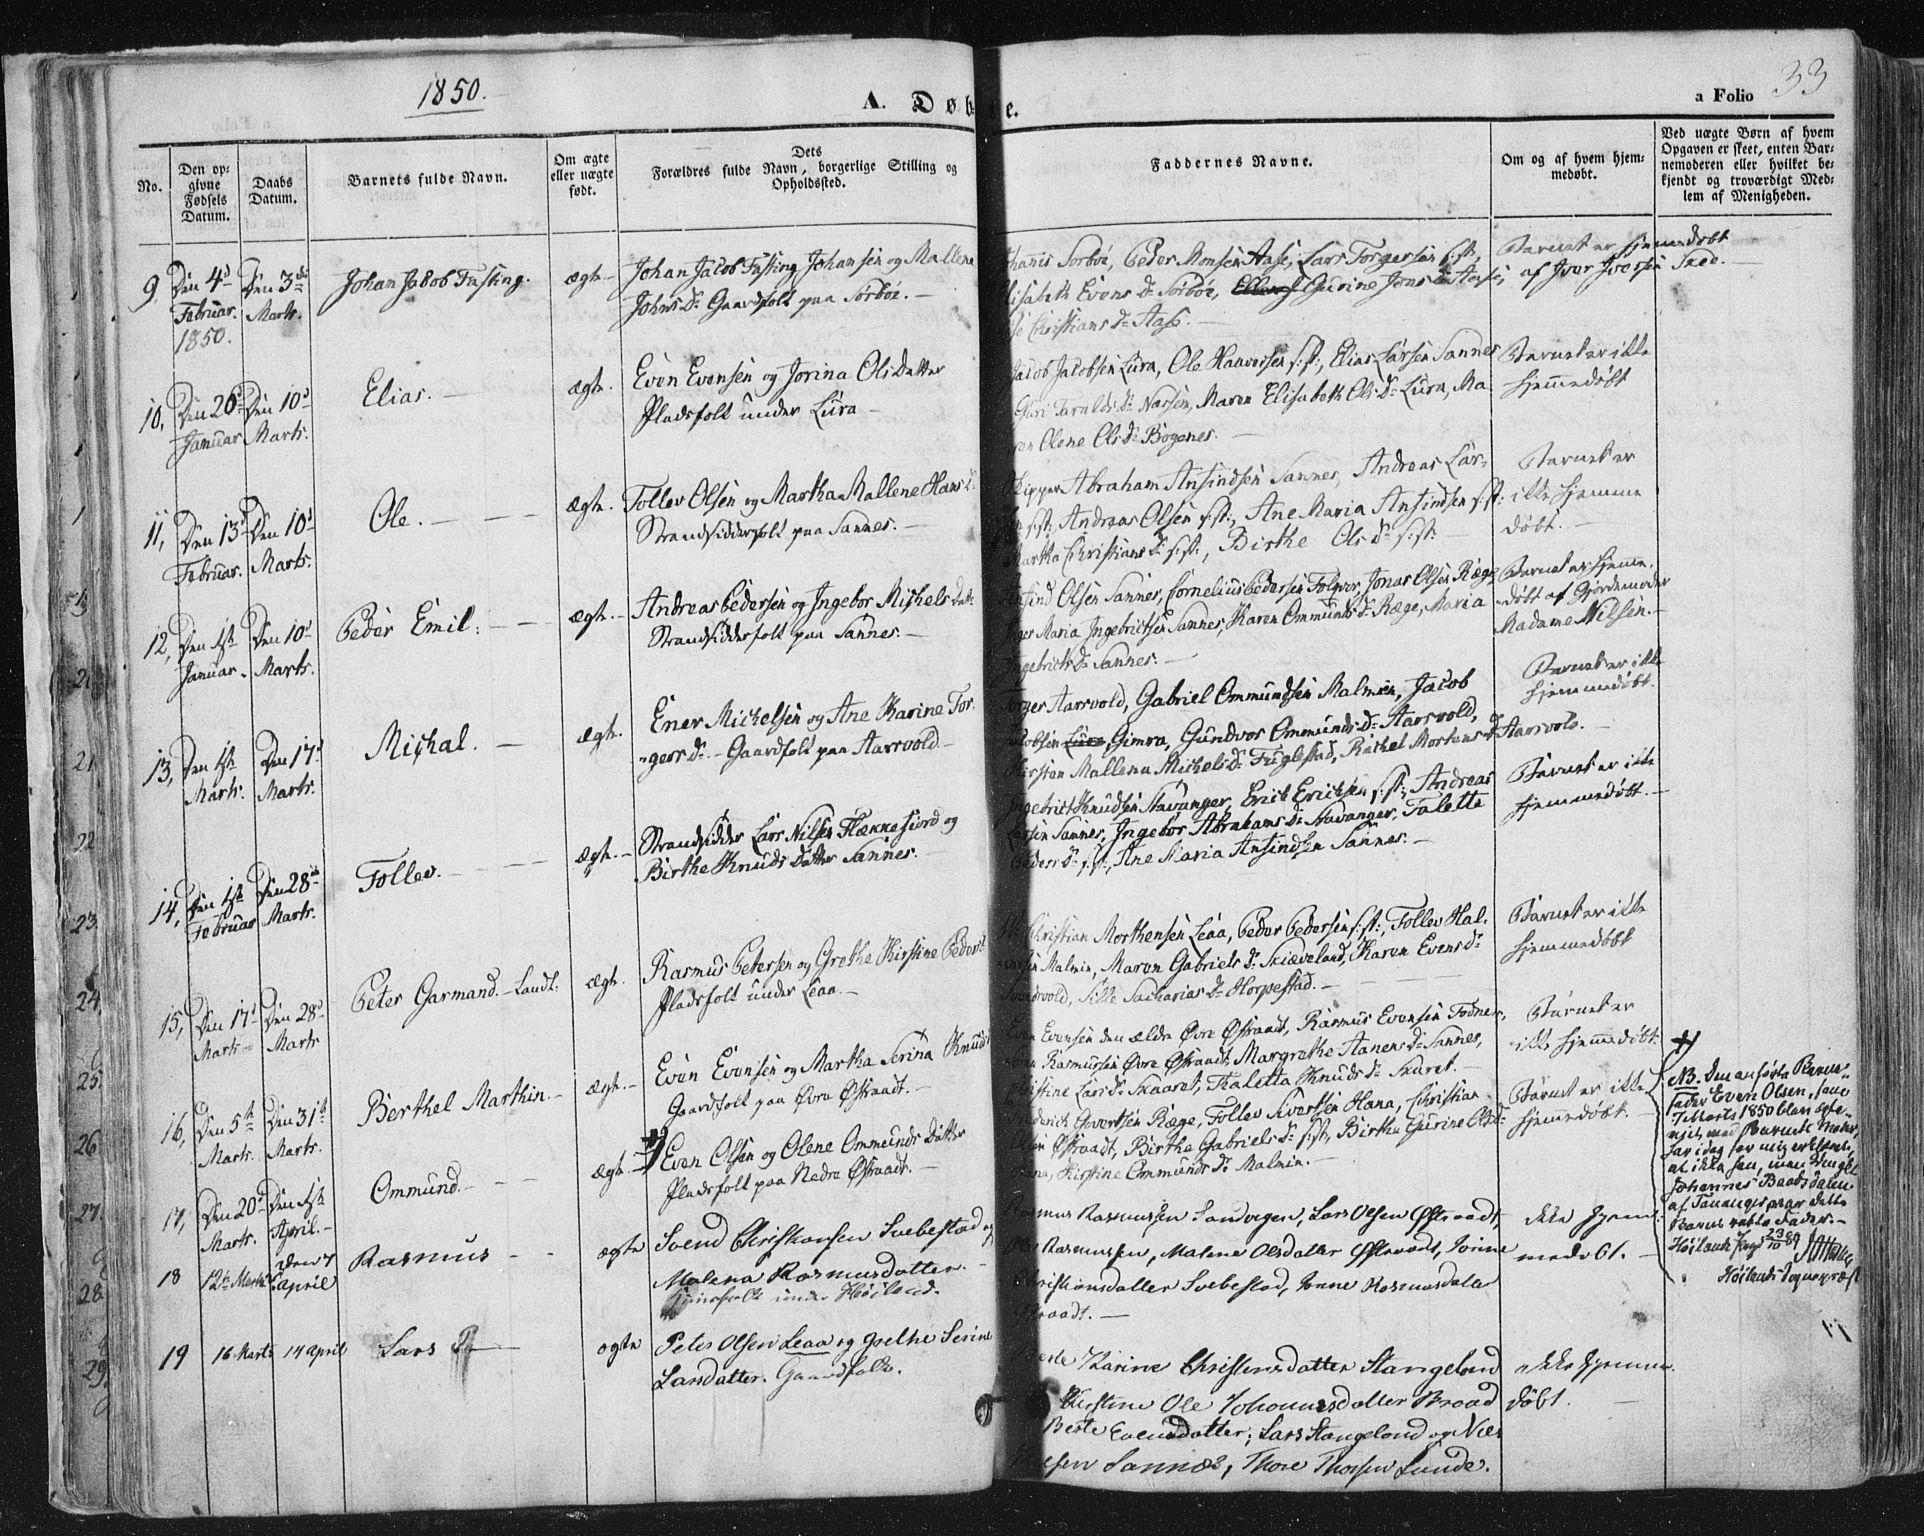 1850.
A. Døbte.
a Folio 33
No.
Den op-
givne
Fødsels
Datum.
Daabs
Datum.
Barnets fulde Navn.
Om ægte
eller uægte
født.
Dets
Forældres fulde Navn, borgerlige Stilling og
Opholdssted.
Faddernes Navne.
Om og af hvem hjem-
medøbt.
Ved uægte Børn af hvem
Opgaven er skeet, enten Bar-
nemoderen eller hvilket be-
kjendt og troværdigt Med-
lem af Menigheden.
9, Den 4d Februar. 1850. Den 3die Marts. Johan Jacob Fasting. ægte
Johan Jacob Fasting Johansen og Mallene
Johns D. Gaardfolk paa Sørbøe.
Sørbøe, Peder Monsen Aase, Lars Torgersen s: st.,
Elisabeth Evens D. Sørbøe, Gurine Jons D. Aase,
Christians D. Aase.
Barnet er hjemmedøbt
af Iver Iversen Sked.
10, Den 26d Januar Den 10d Marts. Elias. ægte.
Even Evensen og Jorina Ols Datter
Pladsfolk under Lura
Jacob Jacobsen Lura, Ole Haaversen s: st:, Elias Larsen Sannes
Guri Taralds D. , Maren Elisabeth Ols D. Lura, Ma
ren Olene Ols D. Bogenes.
Barnet er ikke
hjemmedøbt
11, Den 13d Februar. Den 10d Marts. Ole. ægte.
Tollev Olsen og Martha Mallene Hans D.
Strandsidderfolk paa Sannes.
Skipper Abraham Ansindsen Sannes, Andreas Lar-
sen s: st:, Andreas Olsen s: st:, Ane Maria Ansindsen s: st:
Martha Christians D. s: st:, Birthe Ols D. s: st:
Barnet er
ikke hjemme
døbt.
12, Den 1ste Januar. Den 10d Marts. Peder Emil. ægte.
Andreas Pedersen og Ingebor Michels Datt.
Strandsidderfolk paa Sannes.
Ansind Olsen Sannes, Cornelius Pedersen Folkvor, Jonas Olsen Ræge,
Inger Maria Ingebrictsen Sannes, Karen Ommunds D. Ræge, Maria
Ingebricts D. Sannes.
Barnet er hjemme,
døbt af Gjordemoder
Madame Nilsen.
13, Den 1ste Marts. Den 17d Marts. Michal. ægte.
Ener Michelsen og Ane Karine Tor-
gers D. Gaardfolk paa Aarsvold.
Torger Aarsvold, Gabriel Ommundsen Malmin, Jacob
Jacobsen Lura, Gimra, Gundvor Ommunds D. Aarsvold,
Kirsten Mallena Michels D. Fuglestad, Rachel Mortens D. Aarsvold.
Barnet er ikke
hjemmedøbt.
14, Den 1ste Februar Den 28de Marts. Tollev. ægte.
Strandsidder Lars Nilsen Flekkefiord og
Birthe Knuds Datter Sannes.
Ingebrict Knudsen Stavanger, Erick Ericksen s: st:, Andreas
Larsen Sannes, Ingebor Abrahams D. Stavanger, Talette
Peders D. s: st:, Ane Maria Ansindsen Sannes.
Barnet er ikke
hjemmedøbt.
15, Den 17d Marts Den 28d Marts Peter Garmand. Landt. ægte.
Rasmus Petersen og Grethe Kirstine Peders D.
Pladsfolk under Leaa.
Christian Morthensen Leaa, Peder Pedersen s: st:, Tollev Hal-
Malmin, Maren Gabriels D. Skiæveland, Karen Evens D.
, Sille Sacharias D. Horpestad.
Barnet er ikke
hjemmedøbt
16, Den 5te Marts. Den 31te Marts. Berthel Marthin. ægte.
Even Evensen og Martha Serina Knuds
Gaardfolk paa Øvre Østraadt.
Even Evensen den ældre Øvre Østraadt, Rasmus Evensen Fodnes,
Rasmusen Øvre Østraadt, Margrethe Aanens D. Sannes,
Christine Lars D. Skaaret, Thaletta Knuds D. Skaret.
Barnet er
ikke hjemmedøbt.
17, Den 20d Marts. Den 1ste April. Ommund. ægte.
Even Olsen og Olene Ommunds Datter
Pladsfolk paa Nedre Østraadt.
Govertsen Ræge, Tollev Sivertsen Hana, Christian
Olsen Østraadt, Birthe Gabriels D. s: st:, Birtha Gurine Ols D.
Hana, Kirstine Ommunds D. Malmin.
Barnet er ikke
hjemmedøbt.
NB. Den anførte Barne-
fader Even Olsen, som
blev ægte-
viet med Barnets Moder,
har idag for mig erklæret,
at ikke han, men
Johannes
af Tananger var dette
Barns rette Fader.
Høiland
Høilands Sognepræst
18 12te Marts den 7 april Rasmus ægte
Svend Christiansen Svebestad og
Malena Rasmusdatter.
under Høiland.
Rasmus Rasmussen Sandvigen, Lars Olsen Østraadt,
Rasmussen, Malene Olsdatter Østraadt, Jorine
Christiansdatter Svebestad, Rasmusdatter
Østraadt.
ikke hjem-
medøbt.
19 16 Marts 14 april Lars ægte
Peter Olsen Leaa og Grethe Serine
Larsdatter. Gaardfolk.
Berte Karine Christensdatter Stangeland
Kirstine Ole Johannesdatter Braad
Berte Evensdatter, Lars Stangeland og
Sannes, Thore Thorsen Lunde.
ikke hjemme
døbt.
21
22
23
24
25.
26
27.
28
29